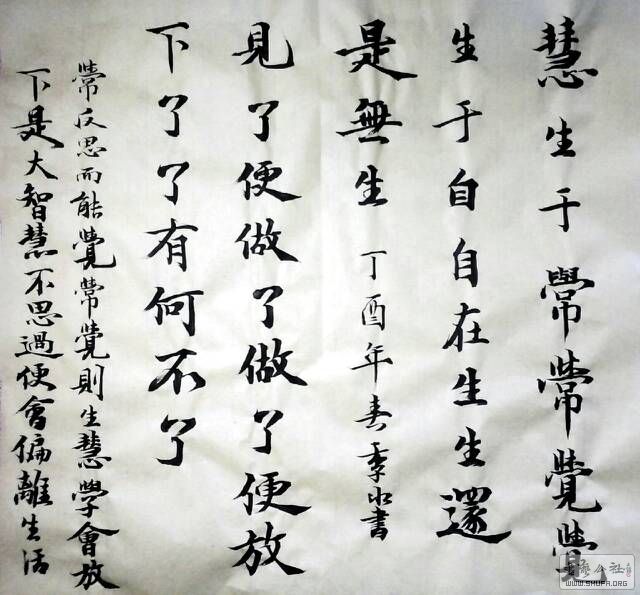 慧生于常常覺覺
生于自自在生生還
是無生 丁酉年春季水書
見了便做了做了便放
下了了有何不了
常反思而能覺常覺則生慧學會放
下是大智慧不思過便會偏離生活
公社
WWW.SHUFA.ORG